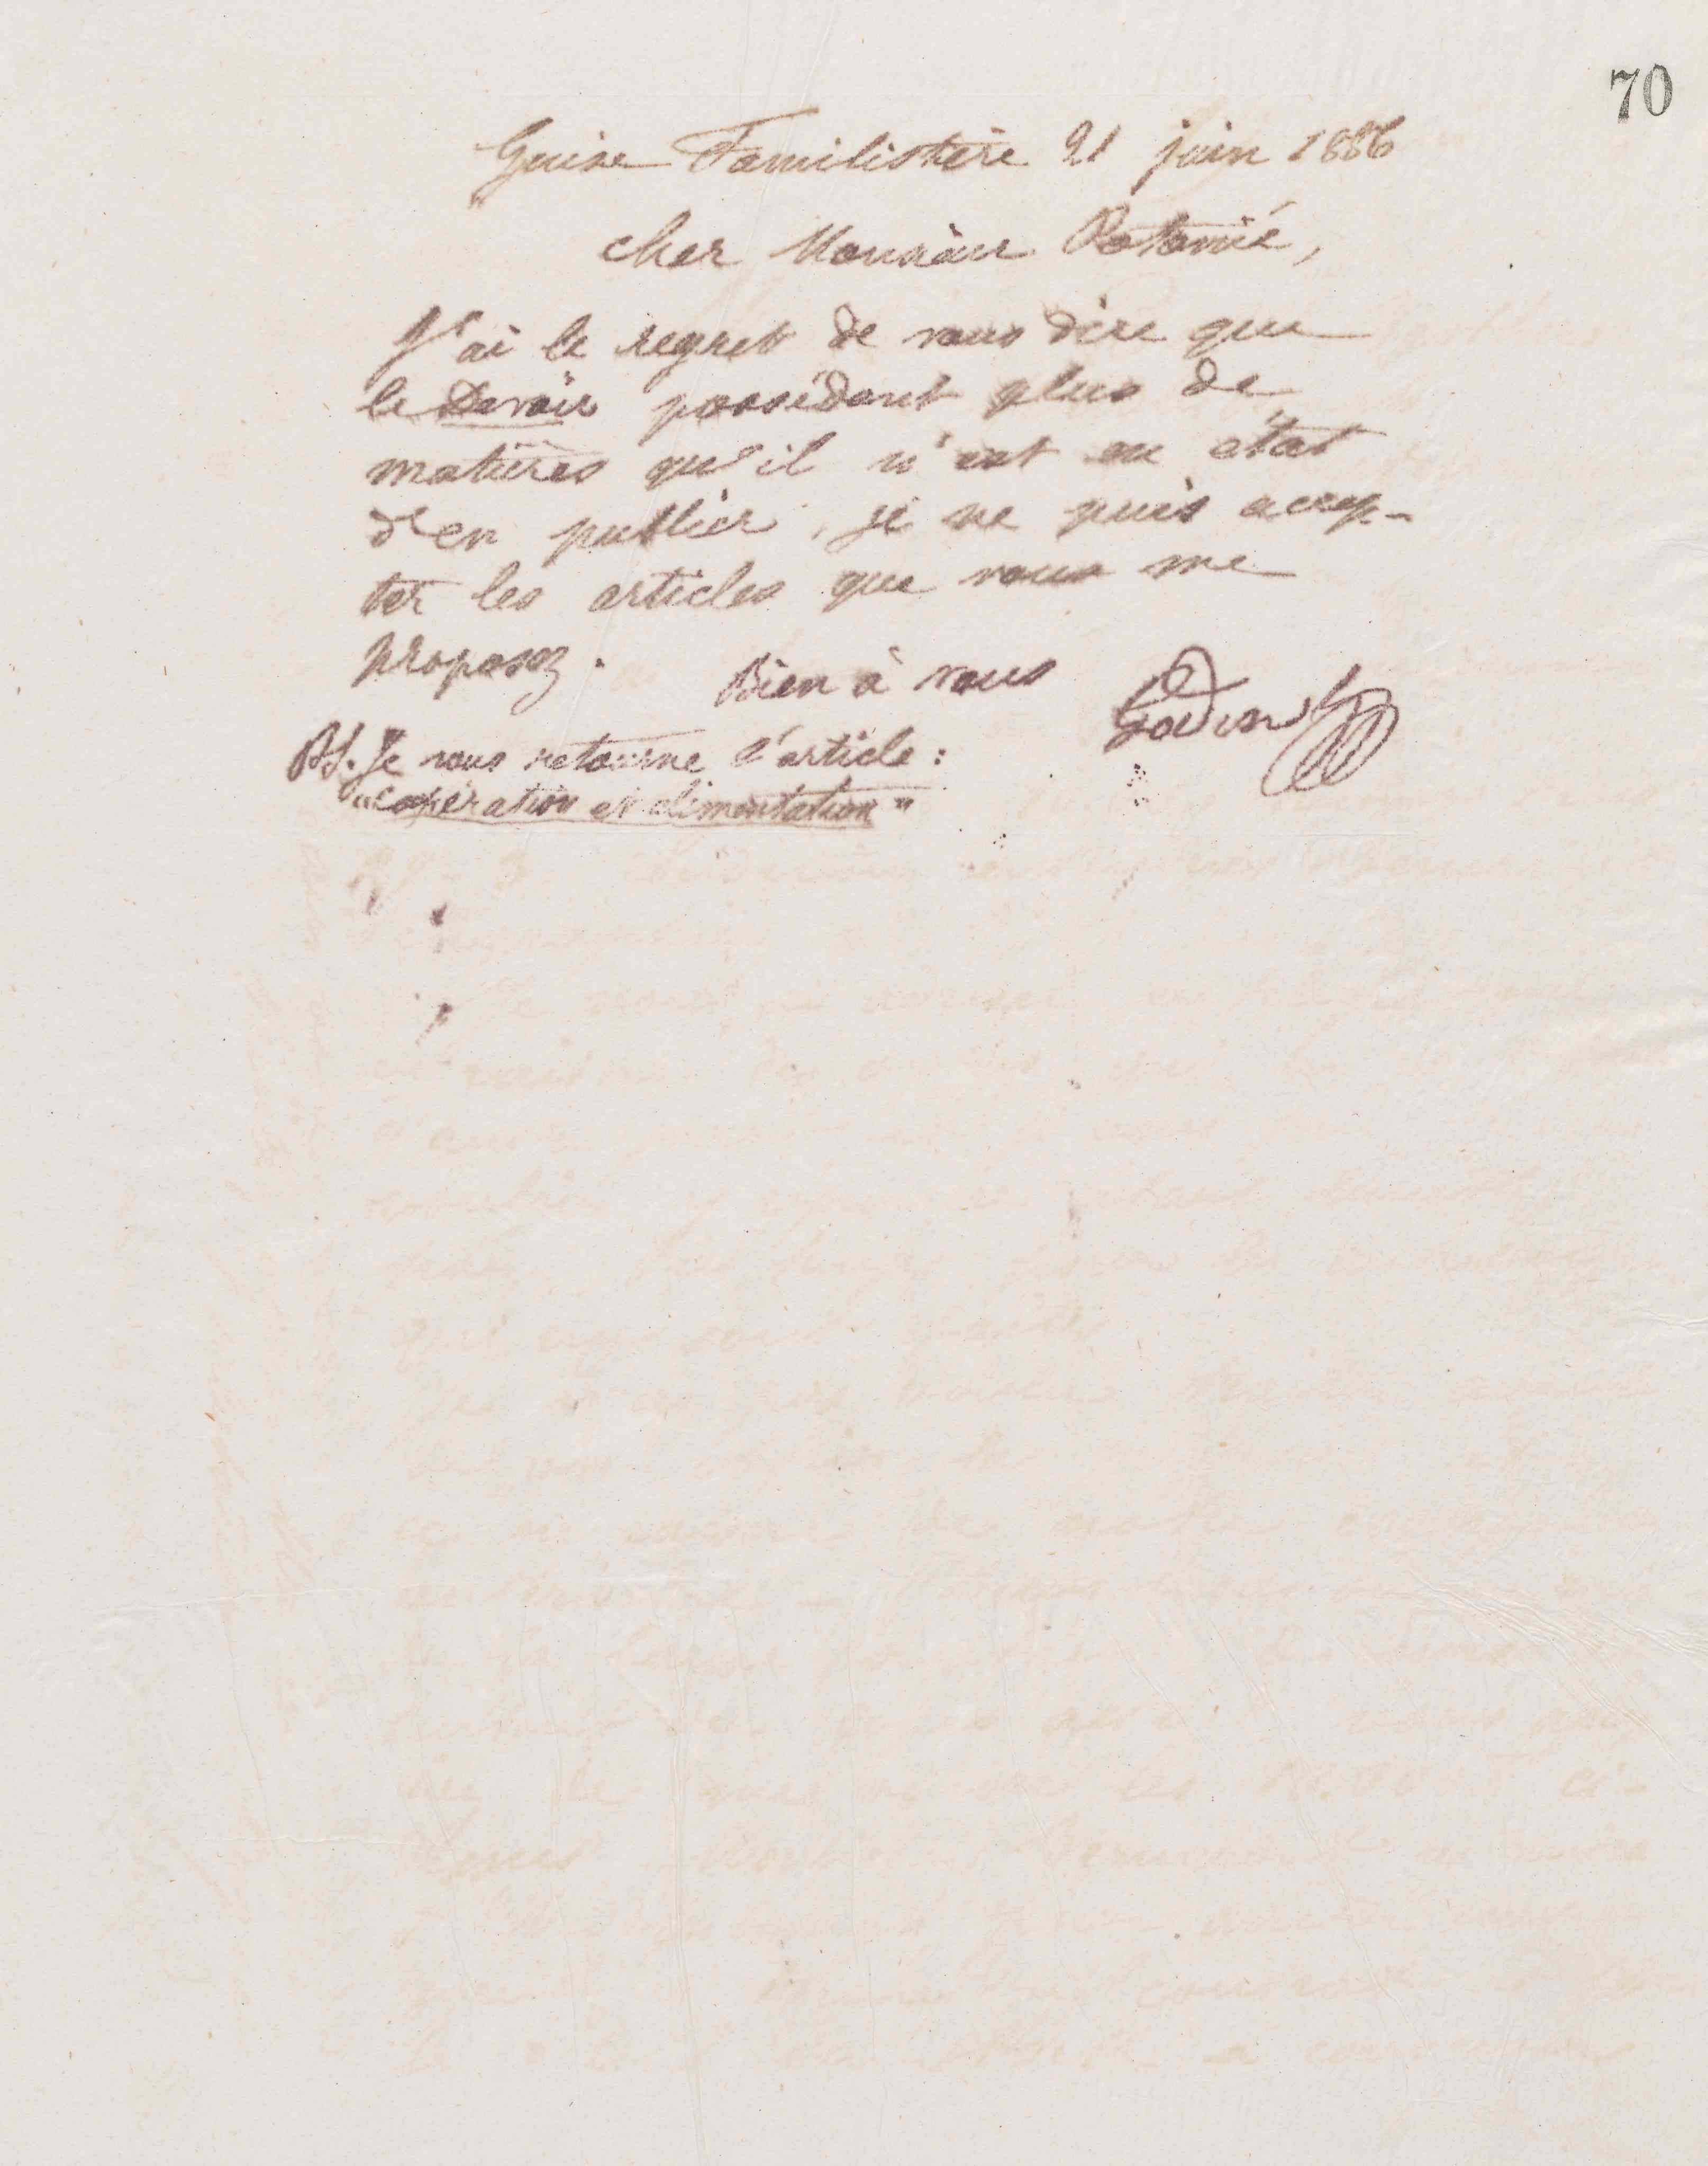 70
Guise Familistère 21 juin 1886
cher Monsieur
J'ai le regret de vous dire que
le Devoir possédant plus de
matières qu'il n'est en état
d'en publier, je ne puis accep-
ter les articles que vous me
proposez.
Bien à vous
Godin
PS. Je vous retourne l'article :
"coopération et alimentation"